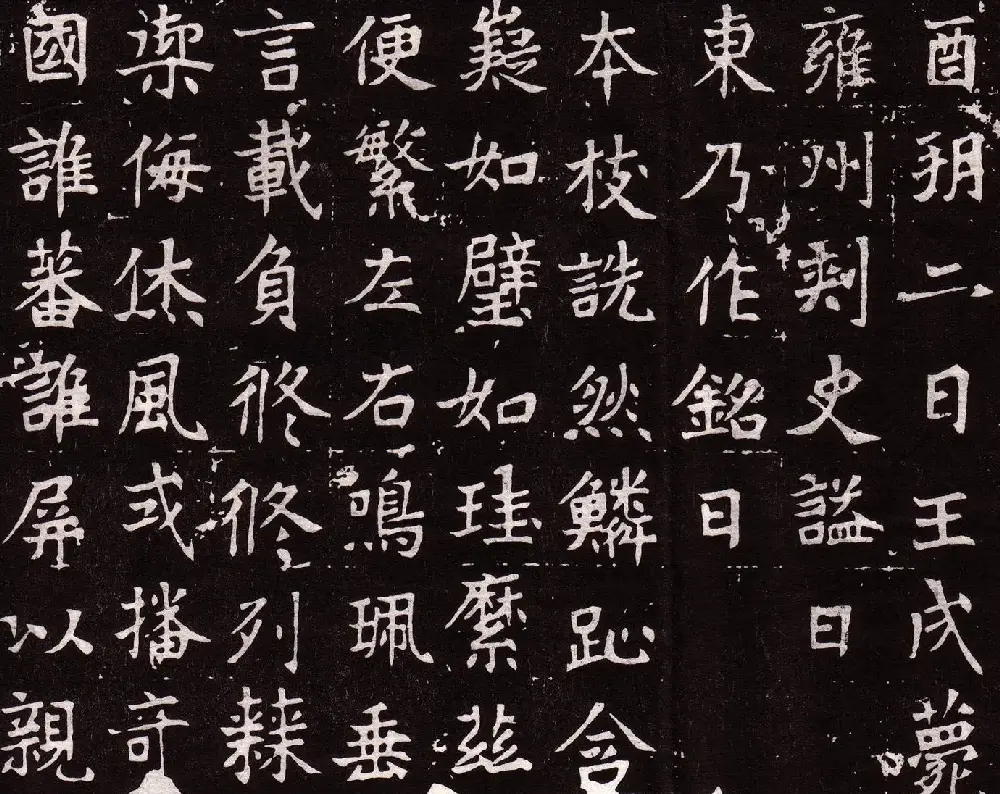 酉朔二日壬戌薨
雍州刺史諡曰
東乃作銘曰
本枝詵然鱗趾含
嶷如璧如珪縻茲
便繁左右鳴珮垂
言載負脩脩列棘
禦侮休風或播奇
國誰蕃誰屏以親